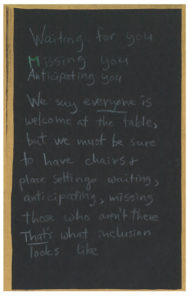 Waiting for you
Missing you
Anticipating you
We say everyone is
welcome at the table,
but we must be sure
to have chairs &
place settings waiting,
anticipating, missing
those who aren't there
That's what inclusion
looks like